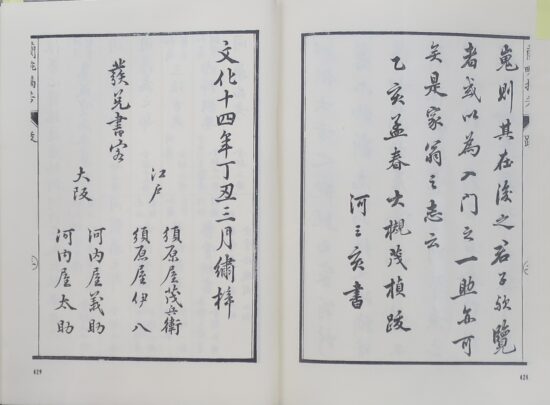 則其在後之君子欲覽
者或以為入門之一助亦可
矣是家翁之志云
乙亥孟春 大槻茂楨跋
河三亥書
文化十四年丁丑三月繡梓
發兌書客
江戶
須原屋茂兵衛
須原屋伊八
大阪
河內屋義助
河內屋太助
429